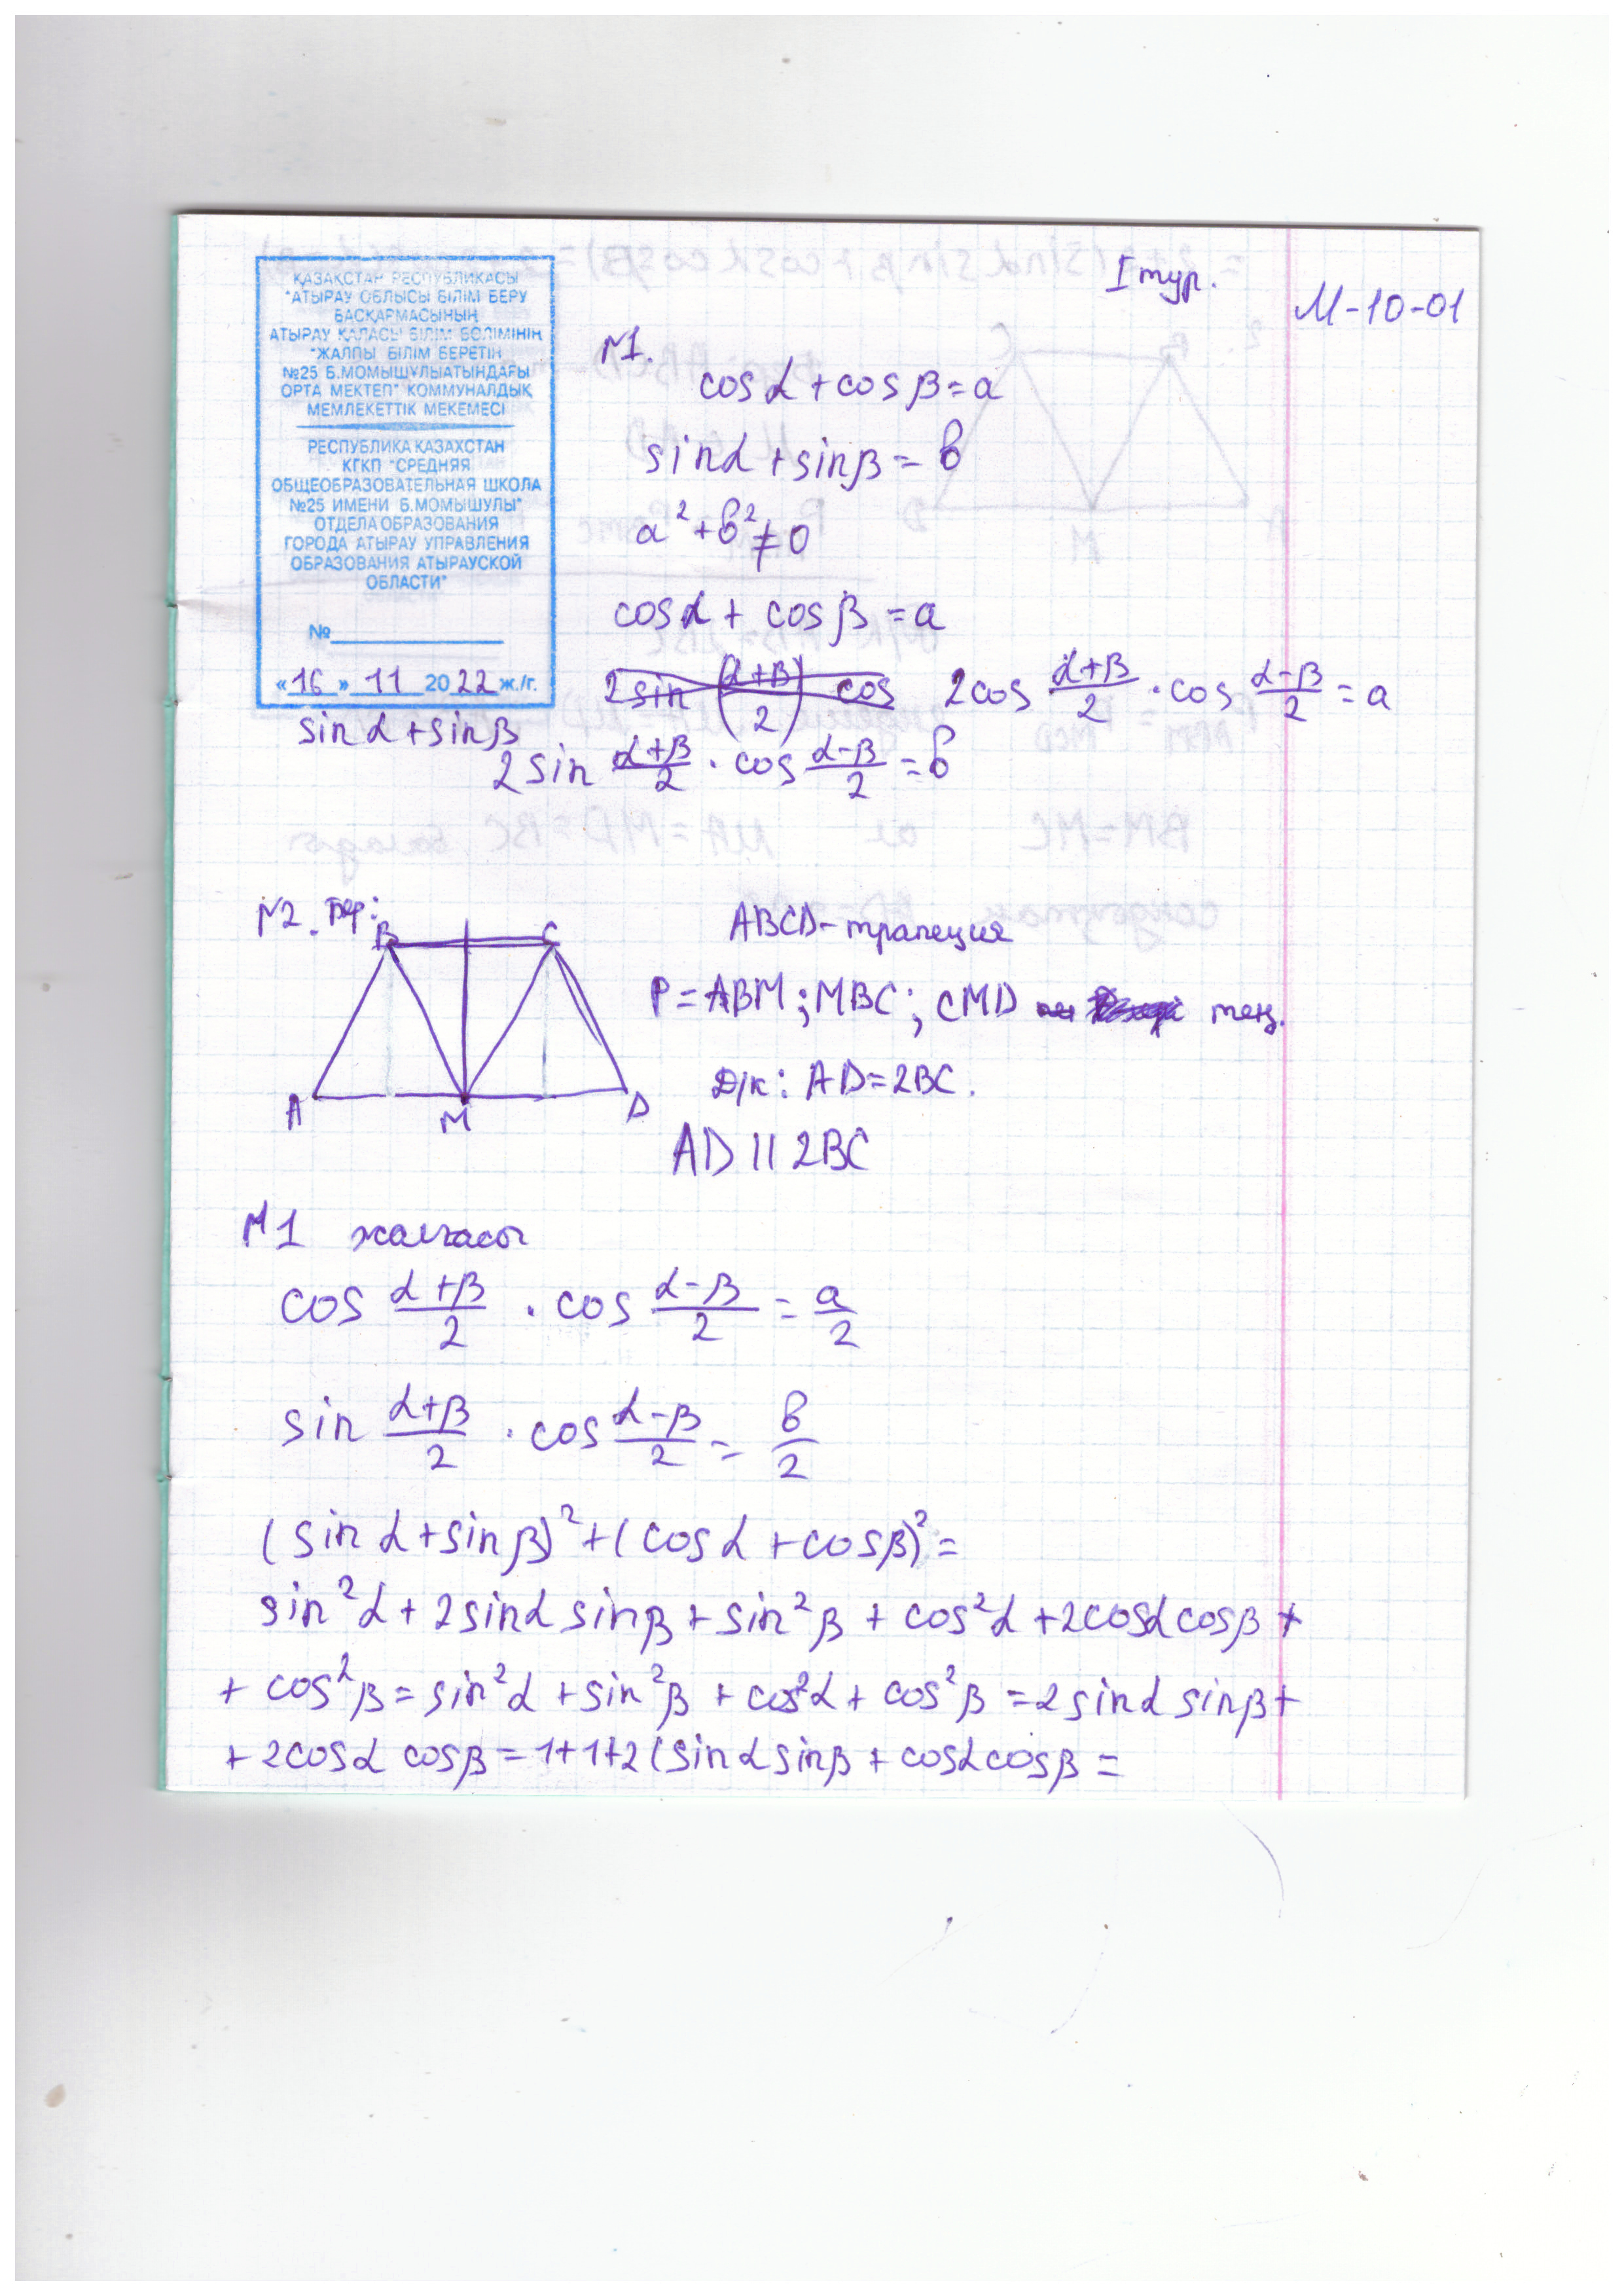 I тур.
М-10-01
ҚАЗАҚСТАН РЕСПУБЛИКАСЫ
"АТЫРАУ ОБЛЫСЫ БІЛІМ БЕРУ
БАСҚАРМАСЫНЫҢ
АТЫРАУ ҚАЛАСЫ БІЛІМ БӨЛІМІНІҢ
"ЖАЛПЫ БІЛІМ БЕРЕТІН
№25 Б.МОМЫШҰЛЫАТЫНДАҒЫ
ОРТА МЕКТЕП" КОММУНАЛДЫҚ
МЕМЛЕКЕТТІК МЕКЕМЕСІ
РЕСПУБЛИКА КАЗАХСТАН
КГКП "СРЕДНЯЯ
ОБЩЕОБРАЗОВАТЕЛЬНАЯ ШКОЛА
№25 ИМЕНИ Б.МОМЫШУЛЫ"
ОТДЕЛА ОБРАЗОВАНИЯ
ГОРОДА АТЫРАУ УПРАВЛЕНИЯ
ОБРАЗОВАНИЯ АТЫРАУСКОЙ
ОБЛАСТИ"
№
«16» 11 2022 ж./г.
№1.
cosα + cosβ = a
sinα + sinβ = b
a² + b² ≠ 0
cosα + cosβ = a
2sin (α+β/2) cos 2cos α+β/2 · cos α-β/2 = a
sinα + sinβ
2sin α+β/2 · cos α-β/2 = b
№2. Бер:
B C
A M D
ABCD - трапеция
P = ABM; MBC; CMD тең.
Д/к: AD = 2BC.
AD || 2BC
№1 жалғасы
cos α+β/2 · cos α-β/2 = a/2
sin α+β/2 · cos α-β/2 = b/2
(sinα + sinβ)² + (cosα + cosβ)² =
sin²α + 2sinα sinβ + sin²β + cos²α + 2cosα cosβ +
+ cos²β = sin²α + sin²β + cos²α + cos²β = 2sinα sinβ +
+ 2cosα cosβ = 1+1+2(sinα sinβ + cosα cosβ =